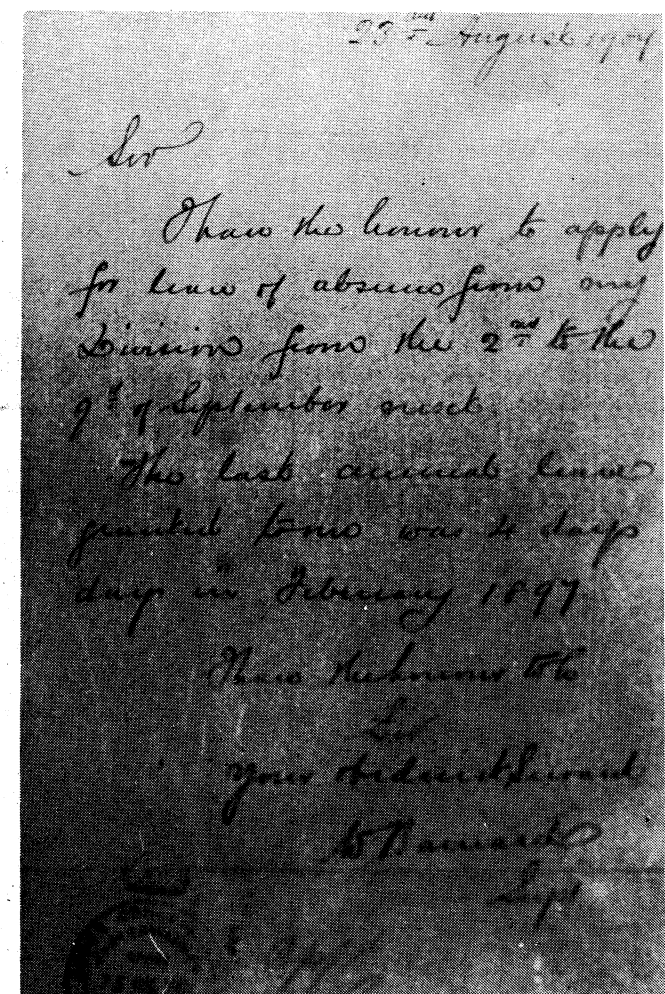 23rd August 1904
Sir
I have the honour to apply
for leave of absence from my
Division from the 2nd to the
9th of September next
The last annual leave
granted to me was 4 days
days in February 1897
I have the honour to be
Sir
Your Obedient Servant
W Barnard
Supt